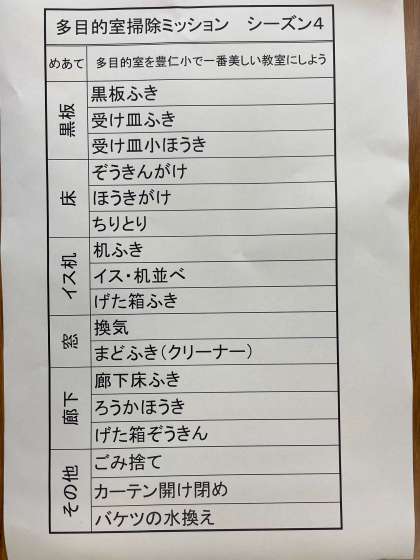 多目的室掃除ミッション　シーズン4
めあて 多目的室を豊仁小で一番美しい教室にしよう
黒板
黒板ふき
受け皿ふき
受け皿小ほうき
床
ぞうきんがけ
ほうきがけ
ちりとり
イス机
机ふき
イス・机並べ
げた箱ふき
窓
換気
まどふき(クリーナー)
廊下
廊下床ふき
ろうかほうき
げた箱ぞうきん
その他
ごみ捨て
カーテン開け閉め
バケツの水換え